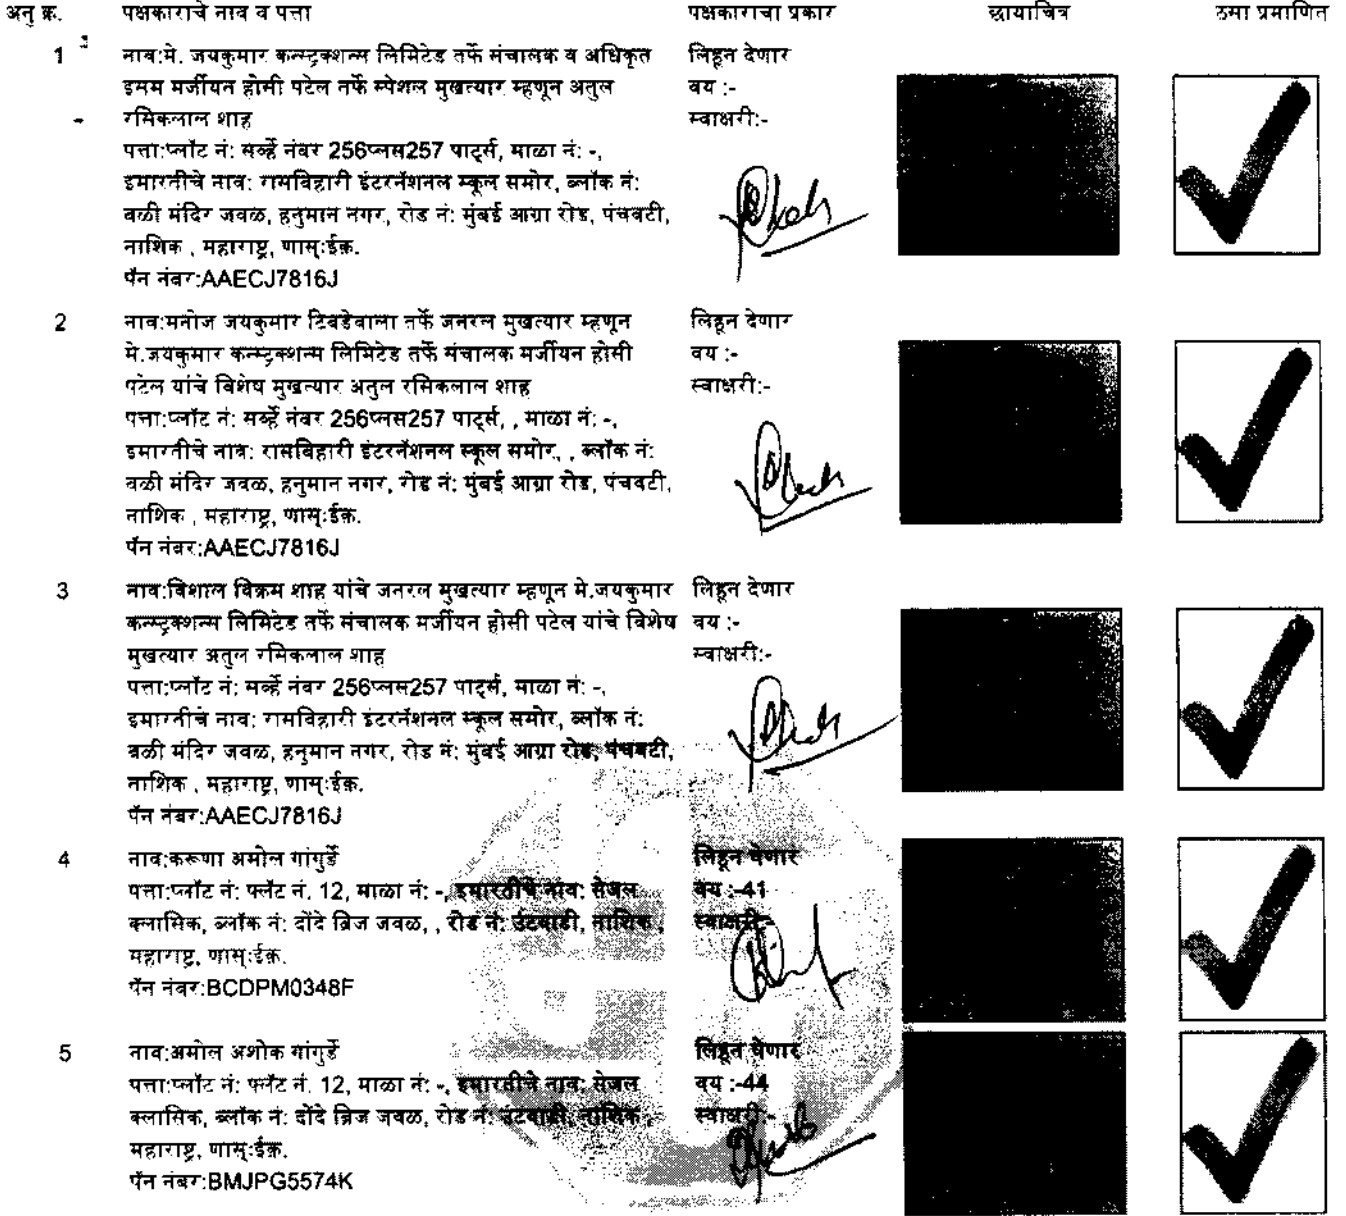 अनु क्र. पक्षकाराचे नाव व पत्ता पक्षकाराचा प्रकार छायाचित्र ठसा प्रमाणित
1 नाव:मे. जयकुमार कन्स्ट्रक्शन्स लिमिटेड तर्फे संचालक व अधिकृत लिहून देणार
इसम मर्जीयन होसी पटेल तर्फे स्पेशल मुखत्यार म्हणून अतुल वय :-
रसिकलाल शाह स्वाक्षरी:-
पत्ता:प्लॉट नं: सर्व्हे नंबर 256प्लस257 पार्ट्स, माळा नं: -,
इमारतीचे नाव: रासबिहारी इंटरनॅशनल स्कूल समोर, ब्लॉक नं:
बळी मंदिर जवळ, हनुमान नगर, रोड नं: मुंबई आग्रा रोड, पंचवटी,
नाशिक , महाराष्ट्र, णास्ःईक़.
पॅन नंबर:AAECJ7816J
2 नाव:मनोज जयकुमार टिबडेवाला तर्फे जनरल मुखत्यार म्हणून लिहून देणार
मे.जयकुमार कन्स्ट्रक्शन्स लिमिटेड तर्फे संचालक मर्जीयन होसी वय :-
पटेल यांचे विशेष मुखत्यार अतुल रसिकलाल शाह स्वाक्षरी:-
पत्ता:प्लॉट नं: सर्व्हे नंबर 256प्लस257 पार्ट्स, , माळा नं: -,
इमारतीचे नाव: रासबिहारी इंटरनॅशनल स्कूल समोर, , ब्लॉक नं:
बळी मंदिर जवळ, हनुमान नगर, रोड नं: मुंबई आग्रा रोड, पंचवटी,
नाशिक , महाराष्ट्र, णास्ःईक़.
पॅन नंबर:AAECJ7816J
3 नाव:विशाल विक्रम शाह यांचे जनरल मुखत्यार म्हणून मे.जयकुमार लिहून देणार
कन्स्ट्रक्शन्स लिमिटेड तर्फे संचालक मर्जीयन होसी पटेल यांचे विशेष वय :-
मुखत्यार अतुल रसिकलाल शाह स्वाक्षरी:-
पत्ता:प्लॉट नं: सर्व्हे नंबर 256प्लस257 पार्ट्स, माळा नं: -,
इमारतीचे नाव: रासबिहारी इंटरनॅशनल स्कूल समोर, ब्लॉक नं:
बळी मंदिर जवळ, हनुमान नगर, रोड नं: मुंबई आग्रा रोड, पंचवटी,
नाशिक , महाराष्ट्र, णास्ःईक़.
पॅन नंबर:AAECJ7816J
4 नाव:करूणा अमोल गांगुर्डे लिहून घेणार
पत्ता:प्लॉट नं: फ्लॅट नं. 12, माळा नं: -, इमारतीचे नाव: सेजल वय :-41
क्लासिक, ब्लॉक नं: दोंदे ब्रिज जवळ, , रोड नं: उंटवाडी, नाशिक , स्वाक्षरी:-
महाराष्ट्र, णास्ःईक़.
पॅन नंबर:BCDPM0348F
5 नाव:अमोल अशोक गांगुर्डे लिहून घेणार
पत्ता:प्लॉट नं: फ्लॅट नं. 12, माळा नं: -, इमारतीचे नाव: सेजल वय :-44
क्लासिक, ब्लॉक नं: दोंदे ब्रिज जवळ, रोड नं: उंटवाडी, नाशिक , स्वाक्षरी:-
महाराष्ट्र, णास्ःईक़.
पॅन नंबर:BMJPG5574K